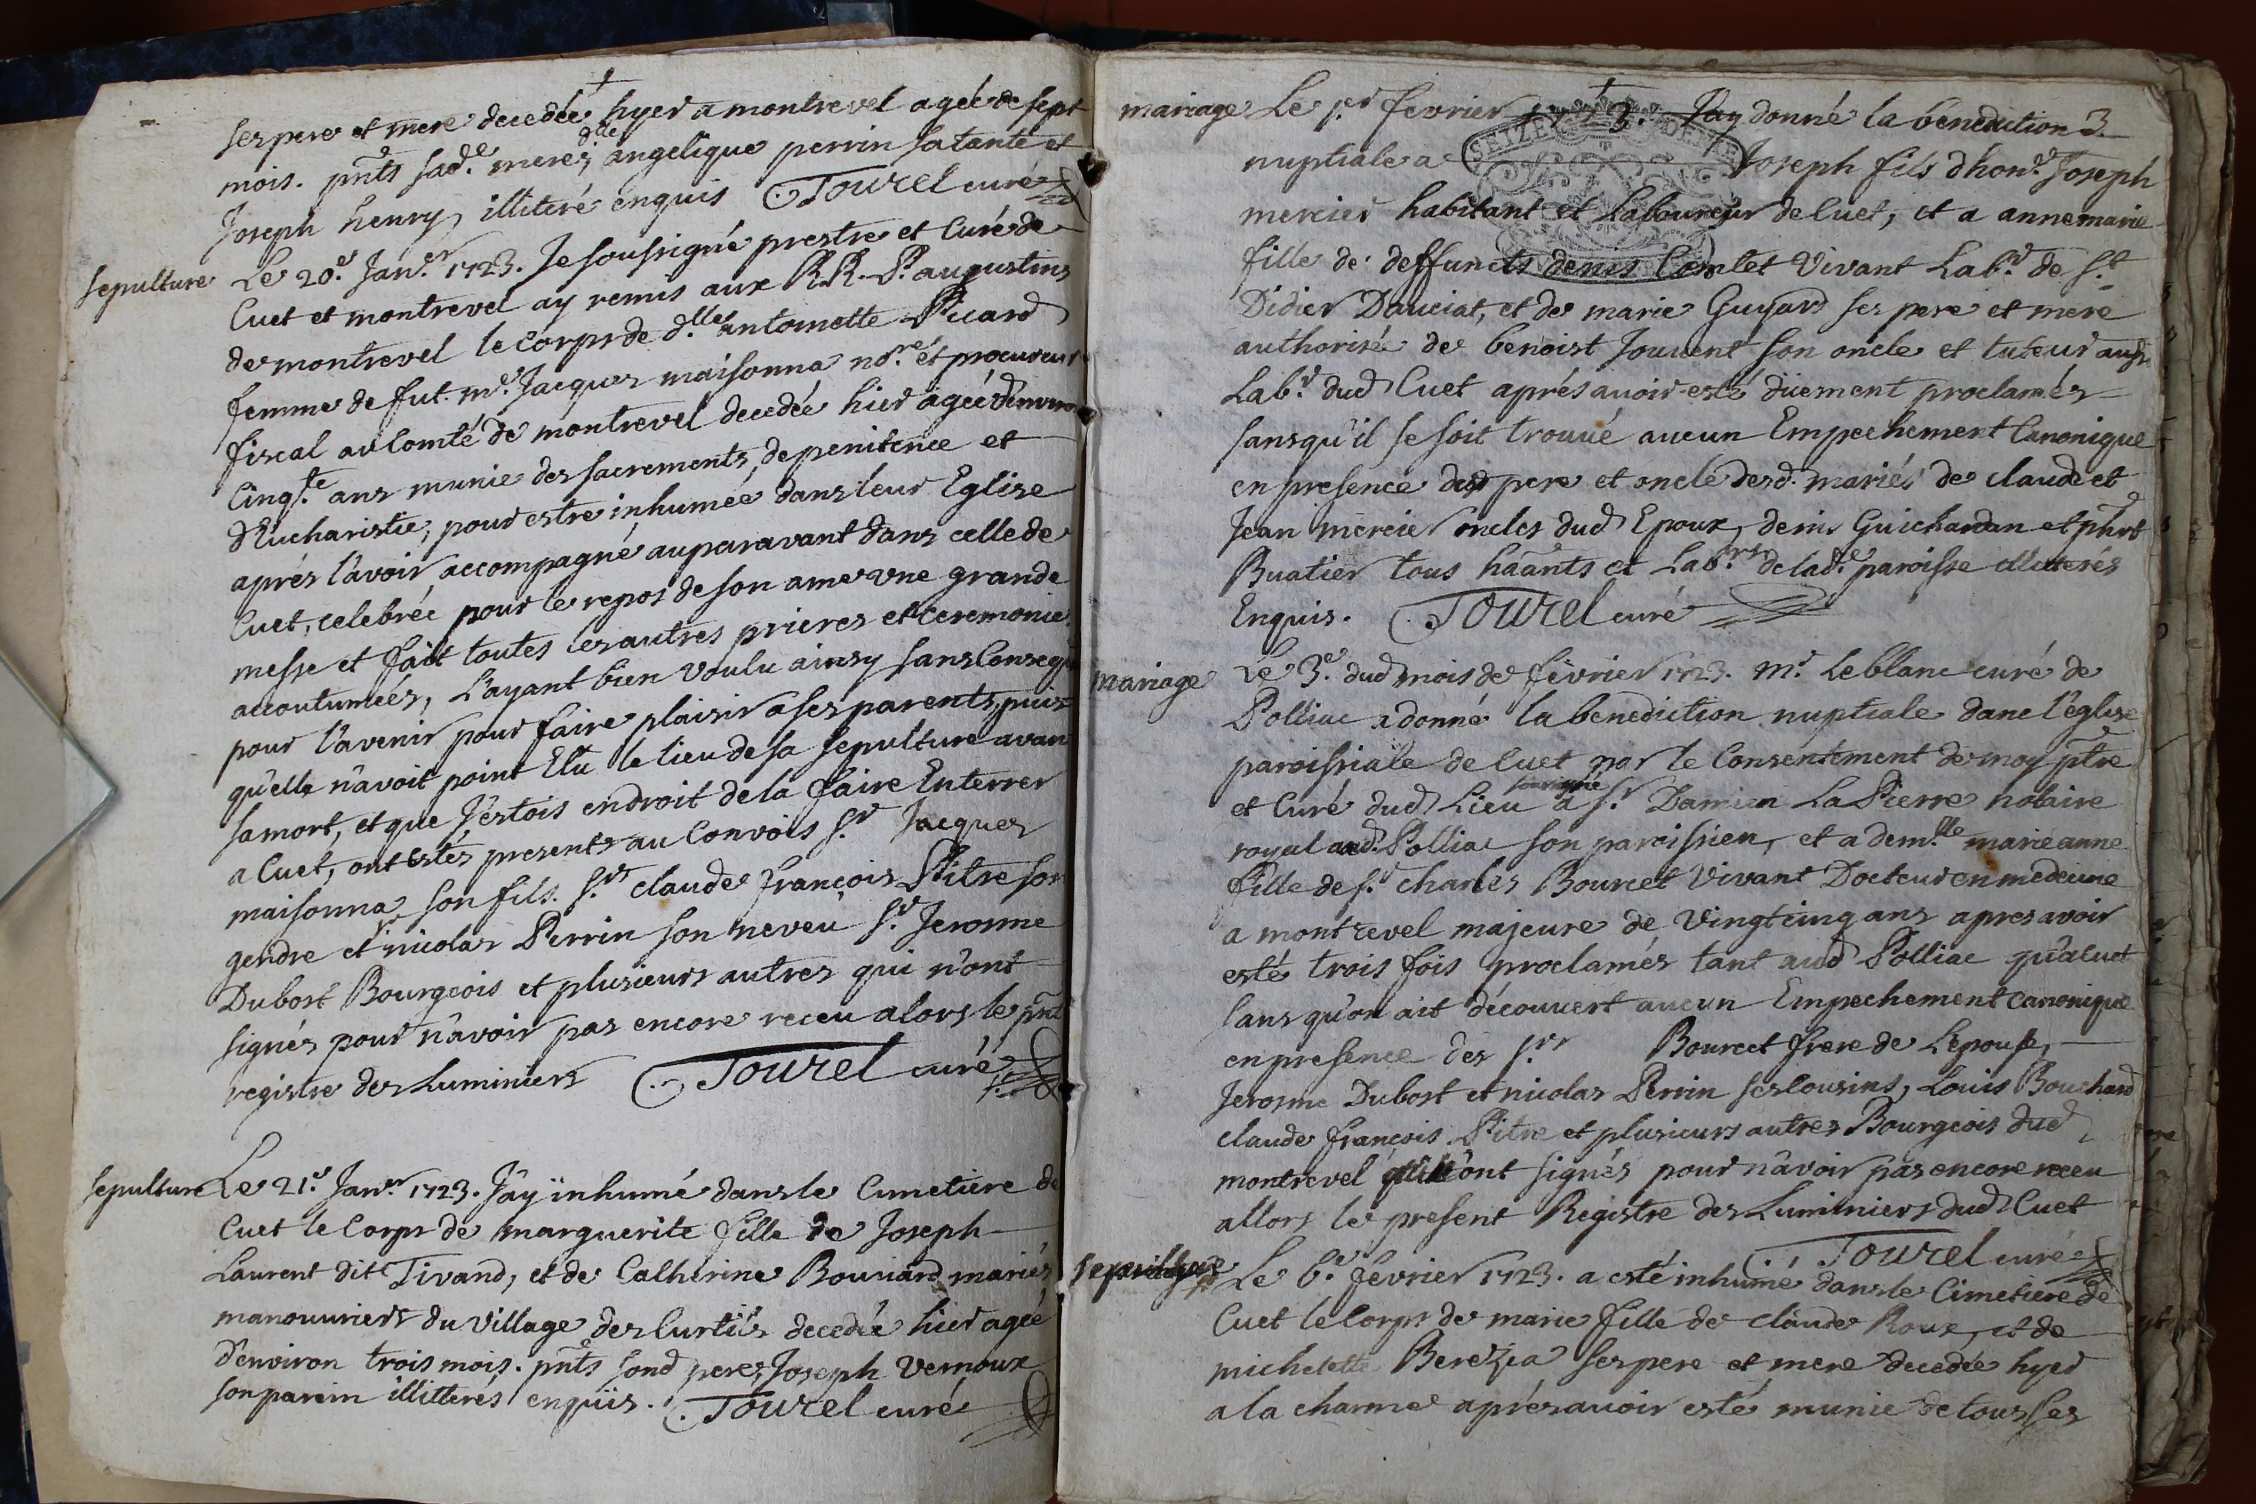 ses pere et mere decedée hyer a montrevel agée de sept
mois. pnts sad.e mere; d.lle angelique perrin sa tante et
Joseph henry illiteré enquis Tourel curé
sepulture Le 20.e Jan.er 1723. Je soussigné prestre et Curé de
Cuet et montrevel ay remis aux R.R. P. augustins
de montrevel le corps de d.lle antoinette Picard
femme de fut m.e Jacques maisonna no.re et procureur
fiscal au Comté de montrevel decedée hier agée d'environ
Cinq.te ans munie des sacrements de penitence et
d'Eucharistie, pour estre inhumée dans leur Eglise
aprés l'avoir accompagné auparavant dans celle de
Cuet, celebrée pour le repos de son ame vne grande
messe et fait toutes les autres prieres et ceremonies
accoutumées, L'ayant bien voulu ainsy sans Conseq
pour l'avenir pour faire plaisir a ses parents, puis
qu'elle n'avoit point Elu le lieu de sa sepulture avan
sa mort, et que J'estois en droit de la faire Enterrer
a Cuet, ont estés presents au Convois s.r Jacques
maisonna son fils. s.r claude françois Pitre son
gendre et s.r nicolas Perrin son neveu s.r Jerome
Dubost Bourgeois et plusieurs autres qui n'ont
signés pour n'avoir pas encore receu alors le pnt
registre des Luminiers Tourel curé
sepulture Le 21.e Jan.er 1723. J'ay inhumé dans le Cimetiere de
Cuet le Corps de marguerite fille de Joseph
Laurent dit Tivand, et de Catherine Bouriand mariés
manouuriers du village des Curtils decedée hier agée
d'environ trois mois. pnts sond pere, Joseph Vernoux
son parein illitteres enquis. Tourel curé
mariage Le 1.er fevrier 1723. J'ay donné la benediction 3.
nuptiale a Joseph fils d'hon.e Joseph
mercier habitant et Laboureur de Cuet, et a anne marie
fille de deffuncts denis Comtet Vivant Lab.r de S.t
Didier Dauciat, et de marie Guyard ses pere et mere
authorisée de benoist Jouvent son oncle et tuteur aussi
Lab.r dud Cuet aprés auoir esté düement proclamés
sans qu'il se soit trouué aucun Empechement Canonique
en presence desd pere et oncle desd. mariés de claude et
Jean mercier oncles dud Epoux, denis Guichardan et phbt
Buatier tous hâants et Lab.rs de lad.e paroisse illiterés
Enquis. Tourel curé
mariage Le 3.e dud mois de février 1723. m.r Leblanc curé de
Polliac a donné la benediction nuptiale dane l'eglise
paroissiale de Cuet par le Consentement de moy ptre
et Curé dud Lieu soussigné a s.r Damien La Pierre notaire
royal aud. Polliac son paroissien, et a dem.lle marie anne
fille de s.r charles Bourcet Vivant Docteur en medecine
a montrevel majeure de Vingt cinq ans apres avoir
esté trois fois proclamés tant aud Polliac qu'a Cuet
sans qu'on ait découvert aucun Empechement canonique
en presence des s.rs Bourcet frere de L'epouse,
Jerosme Dubost et nicolas Perrin ses Cousins, Louis Bouchard
claude françois Pitre et plusieurs autres Bourgeois dud
montrevel qui n'ont signés pour n'avoir pas encore receu
allors le present Registre des Luminiers dud Cuet
Tourel curé
Le 6.e février 1723. a esté inhumé dans le Cimetiere de
Cuet le Corps de marie fille de claude Roux, et de
michelette Berezia ses pere et mere decedée hyer
a la charme aprés avoir esté munie de tous ses